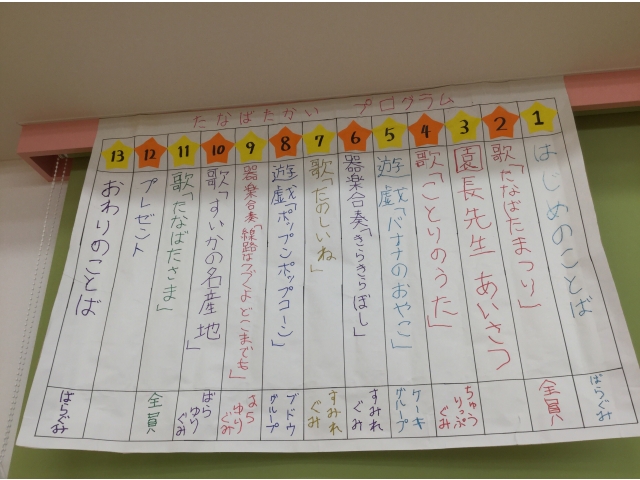 たなばたかい プログラム
1
はじめのことば
ばらぐみ
2
歌「たなばたまつり」
全員
3
園長先生 あいさつ
4
歌「ことりのうた」
ちゅう
りっぷ
ぐみ
5
遊戯「バナナのおやこ」
ケーキ
グループ
6
器楽合奏「きらきらぼし」
すみれ
ぐみ
7
歌「たのしいね」
すみれ
ぐみ
8
遊戯「ポップンポップコーン」
ブドウ
グループ
9
器楽合奏「線路はつづくよどこまでも」
ばら
ゆり
ぐみ
10
歌「すいかの名産地」
ばら
ゆり
ぐみ
11
歌「たなばたさま」
全員
12
プレゼント
13
おわりのことば
ばらぐみ